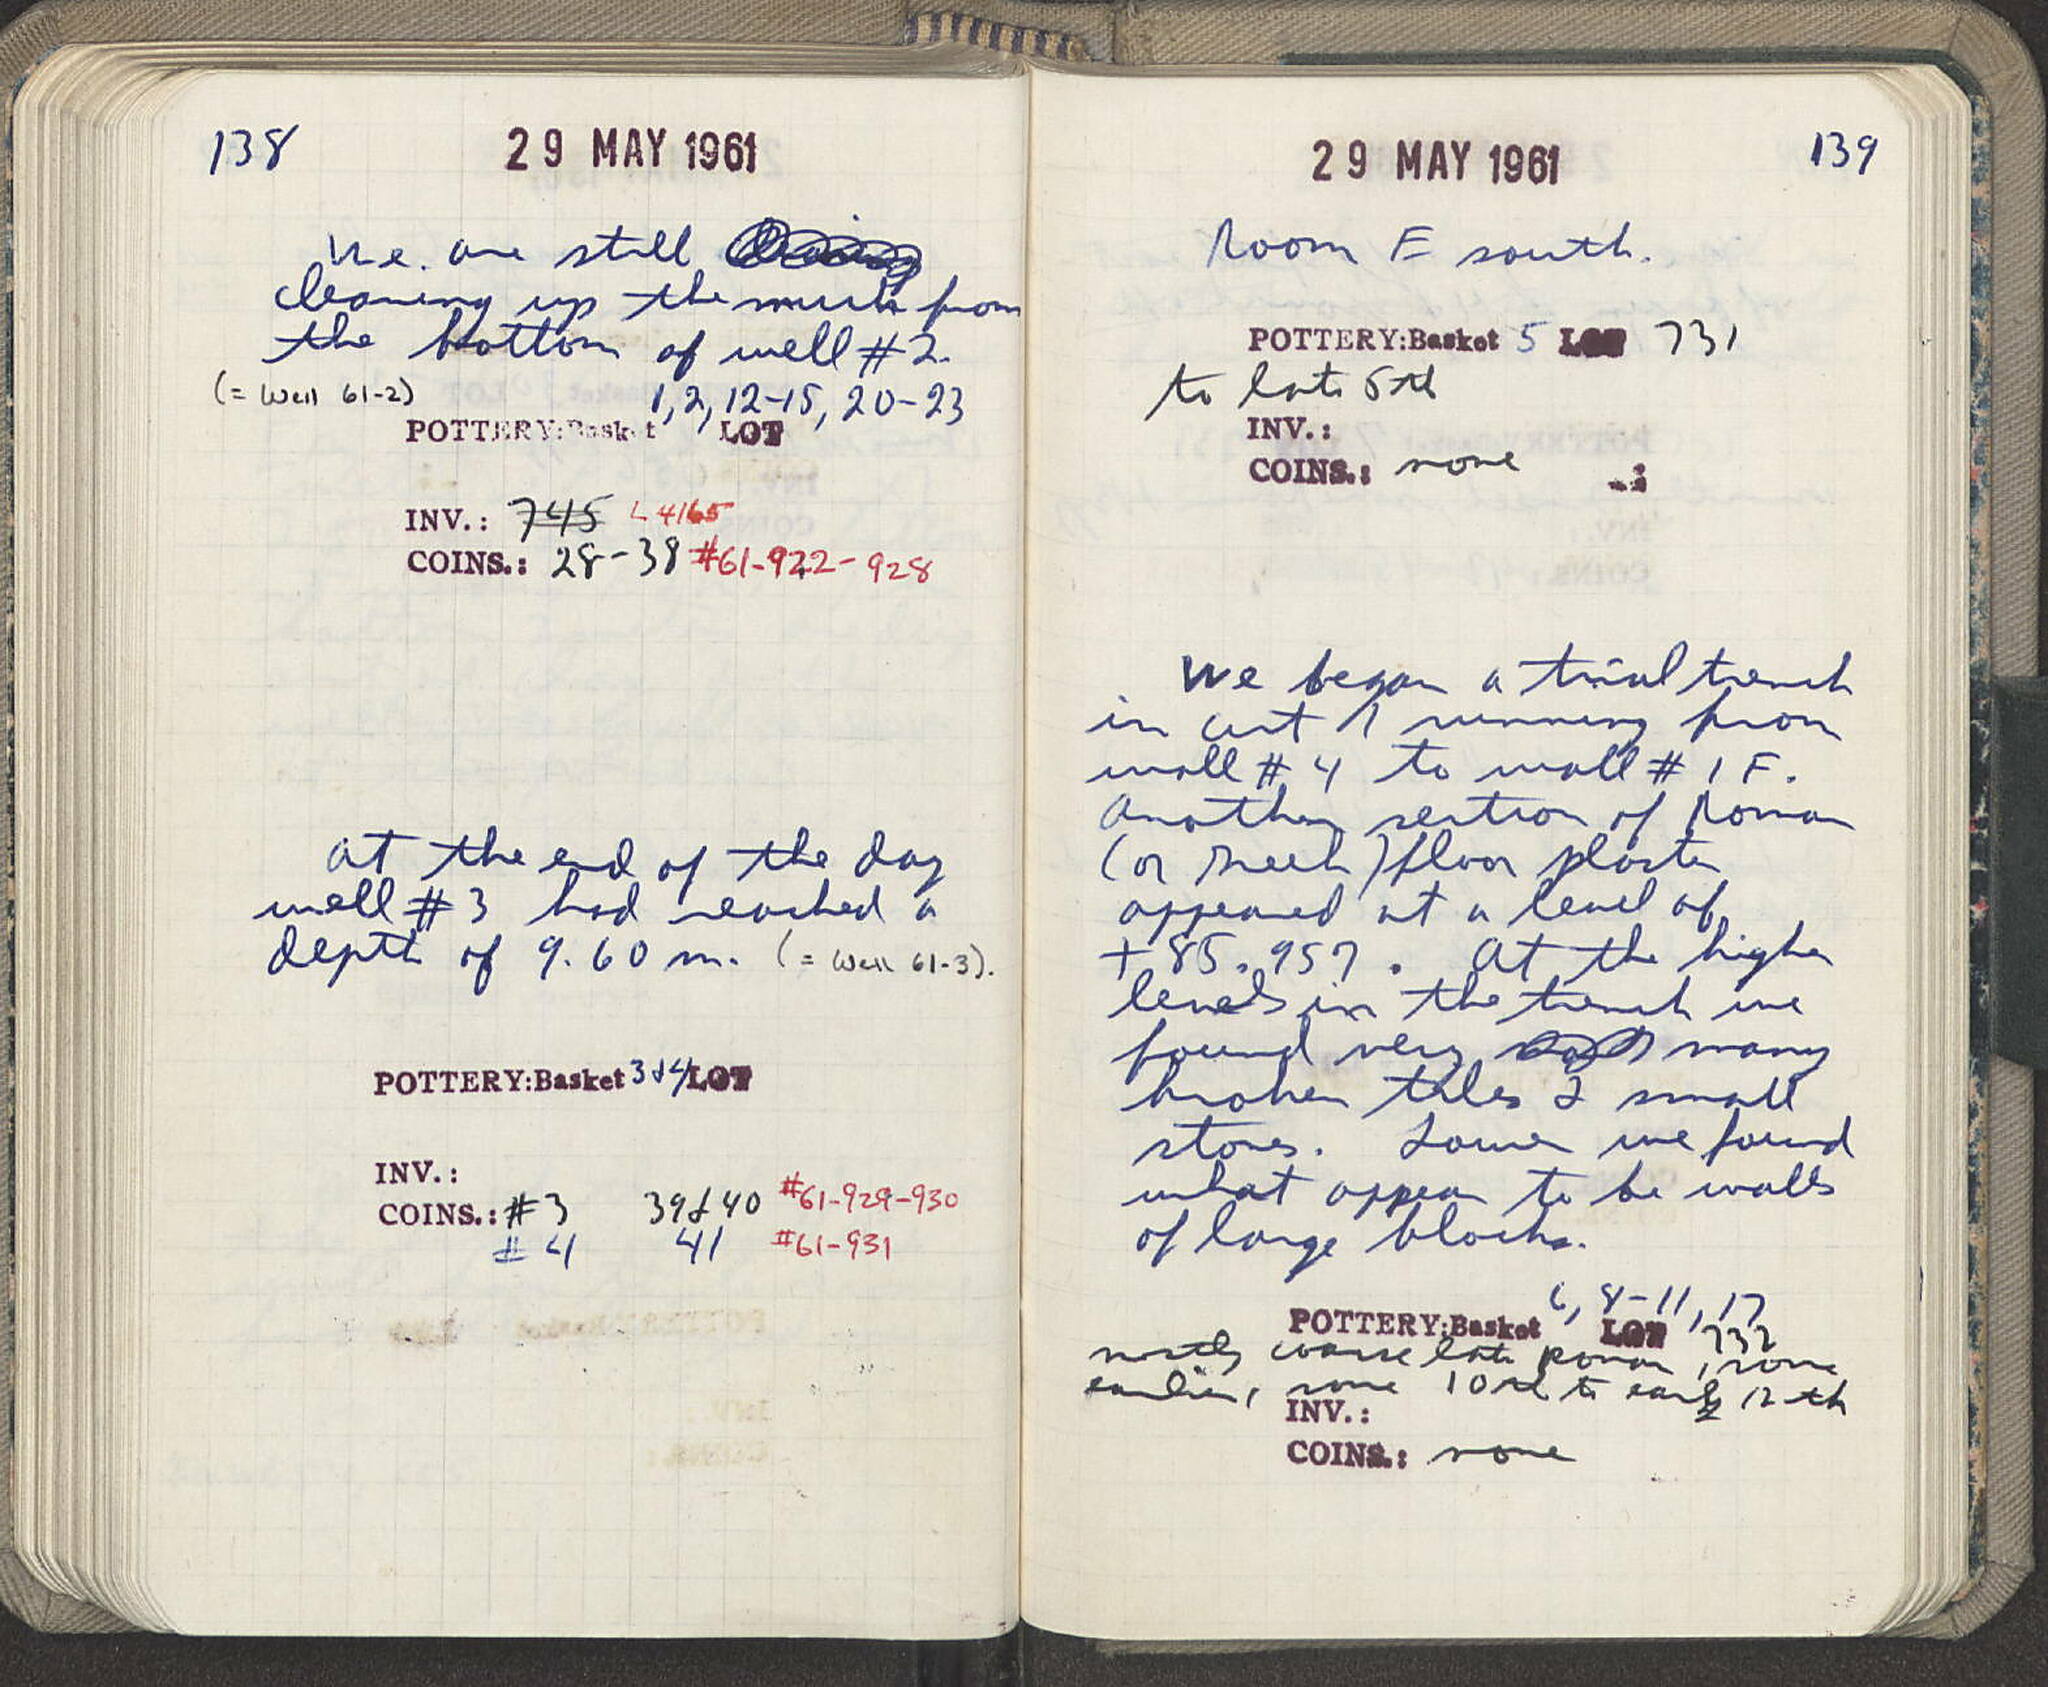 138
29 MAY 1961
We are still
cleaning up the muck from
the bottom of well #2.
(= Well 61-2)
1, 2, 12-15, 20-23
POTTERY:Basket LOT
INV.: 745 L4165
COINS.: 28-38 #61-922-928
At the end of the day
well #3 had reached a
depth of 9.60 m. (= Well 61-3).
POTTERY:Basket 3&4 LOT
INV.:
COINS.: #3 39&40 #61-929-930
#4 41 #61-931
29 MAY 1961
139
Room E south.
POTTERY:Basket 5 LOT 731
to late 5th
INV.:
COINS.: none
We began a trial trench
in cut running from
wall #4 to wall #1 F.
Another section of Roman
(or Greek) floor plaster
appeared at a level of
+85.957. At the higher
levels in the trench we
found very many
broken tiles & small
stones. Lower we found
what appear to be walls
of large blocks.
6, 8-11, 17
POTTERY:Basket LOT 732
mostly coarse late Roman, some
earlier, some 10th to early 12th
INV.:
COINS.: none